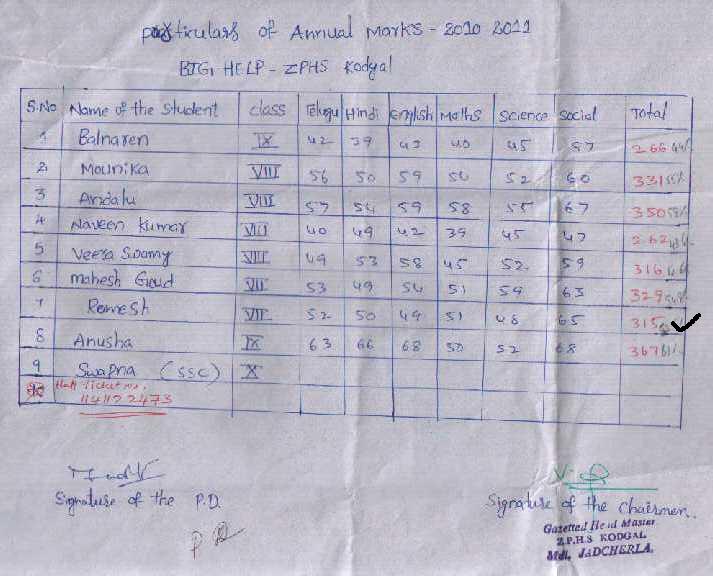 particulars of Annual Marks - 2010 2011
BIG HELP - ZPHS Kodgal
S.No Name of the Student class Telugu Hindi English Maths Science Social Total
1 Balnaren IX 42 39 43 40 45 57 266 44%
2 Mounika VIII 56 50 59 54 52 60 331 55%
3 Andalu VIII 57 54 59 58 55 67 350 58%
4 Naveen Kumar VIII 40 49 42 39 45 47 262
5 Veera Swamy VIII 49 53 58 45 52 59 316
6 Mahesh Goud VII 53 49 54 51 59 63 329
7 Ramesh VII 52 50 49 51 48 65 315
8 Anusha IX 63 66 68 50 52 68 367 61%
9 Swapna (SSC) X
Hall Ticket no.
1141122473
Signature of the P.D.
P D
Signature of the Chairmen.
Gazetted Head Master
Z.P.H.S KODGAL
Mdl. JADCHERLA.